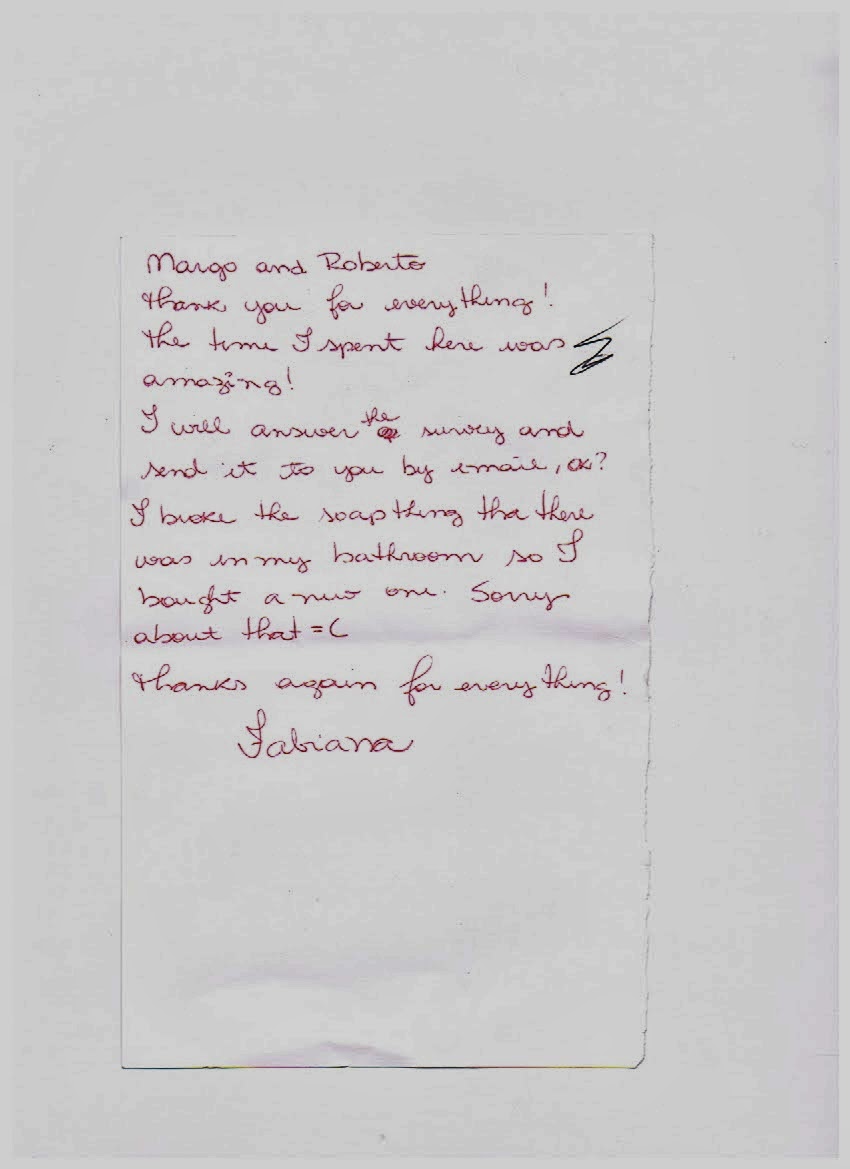 Margo and Roberto
thank you for everything!
the time I spent here was
amazing!
I will answer the survey and
send it to you by email, ok?
I broke the soap thing tha there
was in my bathroom so I
bought a new one. Sorry
about that =(
thanks again for everything!
Fabiana